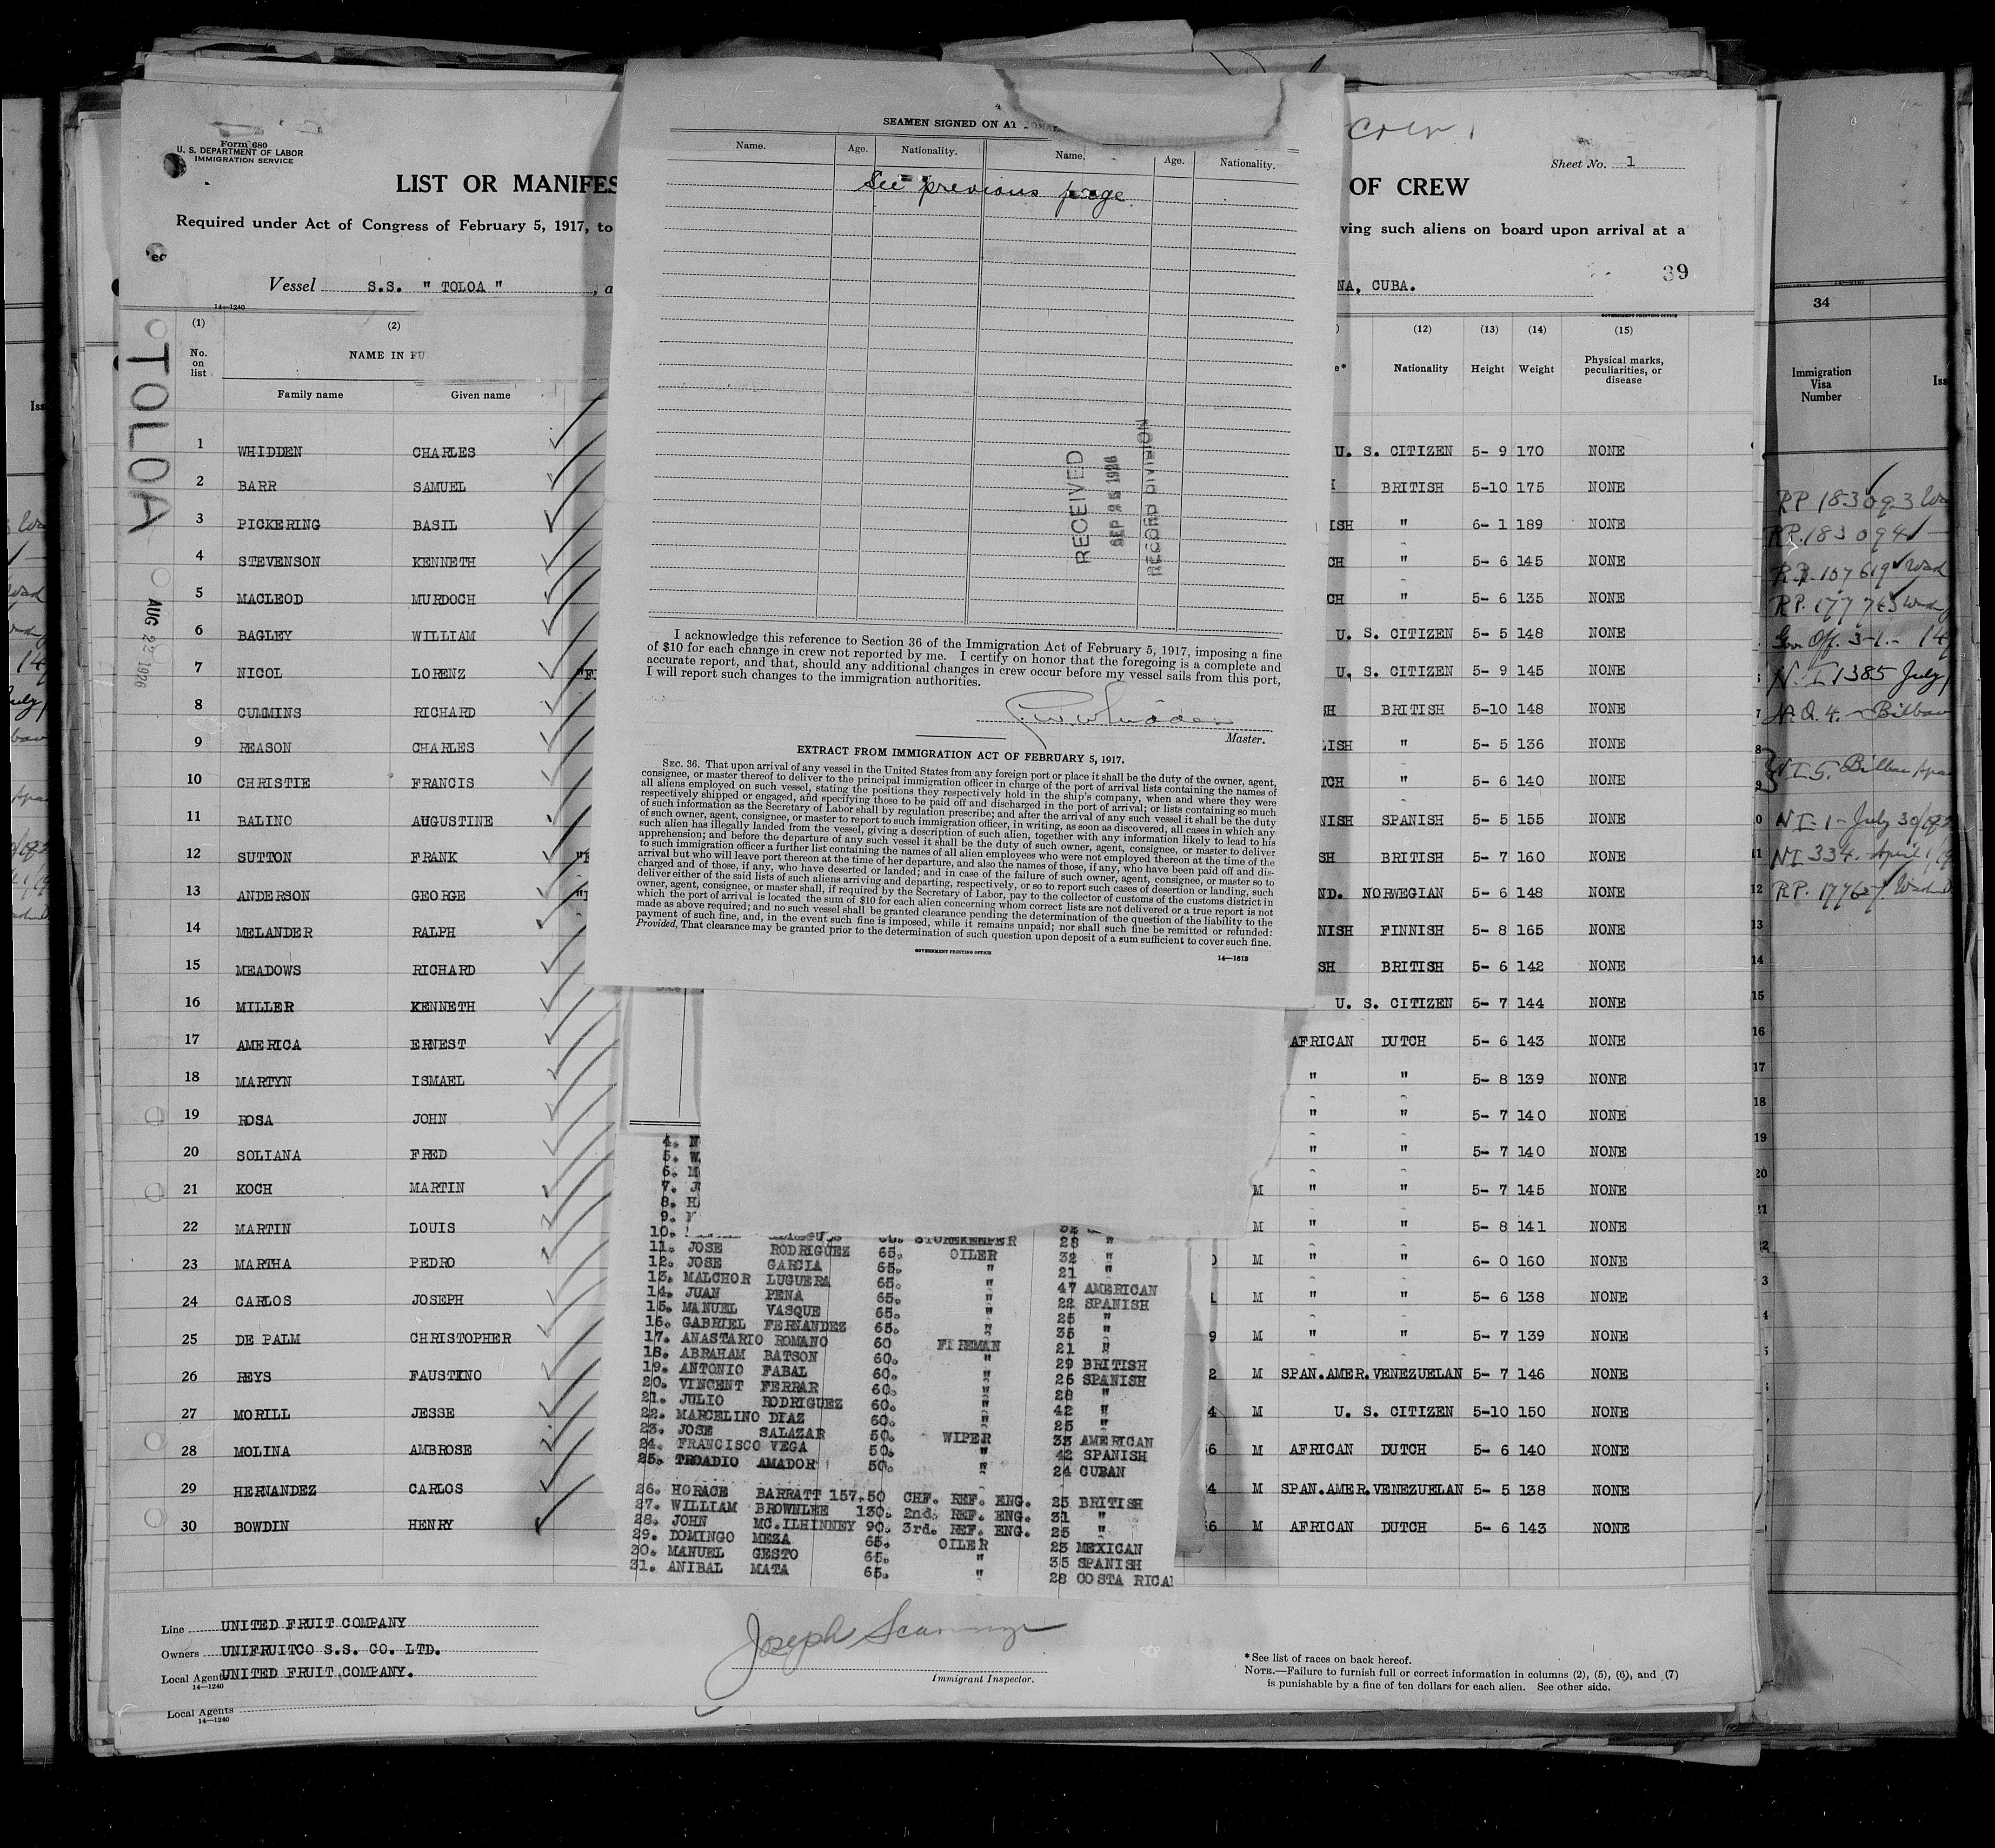 Form 680
U. S. DEPARTMENT OF LABOR
IMMIGRATION SERVICE
LIST OR MANIFES
Required under Act of Congress of February 5, 1917, to
Vessel S.S. " TOLOA " , a
14—1240
TOLOA
AUG 22 1926
(1) (2)
No. on list
NAME IN FU
Family name Given name
1 WHIDDEN CHARLES
2 BARR SAMUEL
3 PICKERING BASIL
4 STEVENSON KENNETH
5 MACLEOD MURDOCH
6 BAGLEY WILLIAM
7 NICOL LORENZ
8 CUMMINS RICHARD
9 REASON CHARLES
10 CHRISTIE FRANCIS
11 BALINO AUGUSTINE
12 SUTTON FRANK
13 ANDERSON GEORGE
14 MELANDER RALPH
15 MEADOWS RICHARD
16 MILLER KENNETH
17 AMERICA ERNEST
18 MARTYN ISMAEL
19 ROSA JOHN
20 SOLIANA FRED
21 KOCH MARTIN
22 MARTIN LOUIS
23 MARTHA PEDRO
24 CARLOS JOSEPH
25 DE PALM CHRISTOPHER
26 REYS FAUSTINO
27 MORILL JESSE
28 MOLINA AMBROSE
29 HERNANDEZ CARLOS
30 BOWDIN HENRY
Line UNITED FRUIT COMPANY
Owners UNIFRUITCO S.S. CO. LTD.
Local Agent UNITED FRUIT COMPANY.
14—1240
Local Agents
14—1240
4
SEAMEN SIGNED ON AT
Name. Age. Nationality. Name. Age. Nationality.
See previous page.
RECEIVED
SEP 25 1926
RECORD DIVISION
I acknowledge this reference to Section 36 of the Immigration Act of February 5, 1917, imposing a fine
of $10 for each change in crew not reported by me. I certify on honor that the foregoing is a complete and
accurate report, and that, should any additional changes in crew occur before my vessel sails from this port,
I will report such changes to the immigration authorities.
Master.
EXTRACT FROM IMMIGRATION ACT OF FEBRUARY 5, 1917.
SEC. 36. That upon arrival of any vessel in the United States from any foreign port or place it shall be the duty of the owner, agent,
consignee, or master thereof to deliver to the principal immigration officer in charge of the port of arrival lists containing the names of
all aliens employed on such vessel, stating the positions they respectively hold in the ship's company, when and where they were
respectively shipped or engaged, and specifying those to be paid off and discharged in the port of arrival; or lists containing so much
of such information as the Secretary of Labor shall by regulation prescribe; and after the arrival of any such vessel it shall be the duty
of such owner, agent, consignee, or master to report to such immigration officer, in writing, as soon as discovered, all cases in which any
such alien has illegally landed from the vessel, giving a description of such alien, together with any information likely to lead to his
apprehension; and before the departure of any such vessel it shall be the duty of such owner, agent, consignee, or master to deliver
to such immigration officer a further list containing the names of all alien employees who were not employed thereon at the time of the
arrival but who will leave port thereon at the time of her departure, and also the names of those, if any, who have been paid off and dis-
charged and of those, if any, who have deserted or landed; and in case of the failure of such owner, agent, consignee, or master so to
deliver either of the said lists of such aliens arriving and departing, respectively, or so to report such cases of desertion or landing, such
owner, agent, consignee, or master shall, if required by the Secretary of Labor, pay to the collector of customs of the customs district in
which the port of arrival is located the sum of $10 for each alien concerning whom correct lists are not delivered or a true report is not
made as above required; and no such vessel shall be granted clearance pending the determination of the question of the liability to the
payment of such fine, and, in the event such fine is imposed, while it remains unpaid; nor shall such fine be remitted or refunded:
Provided, That clearance may be granted prior to the determination of such question upon deposit of a sum sufficient to cover such fine.
GOVERNMENT PRINTING OFFICE
14—1613
4. N
5. W
6. M
7. J
8. H
9.
10. STOREKEEPER
11. JOSE RODRIGUEZ 65. OILER 28 "
12. JOSE GARCIA 65. " 32 "
13. MALCHOR LUGUERA 65. " 21 "
14. JUAN PENA 65. " 47 AMERICAN
15. MANUEL VASQUE 65. " 22 SPANISH
16. GABRIEL FERNANDEZ 65. " 25 "
17. ANASTARIO ROMANO 60 FIREMAN 35 "
18. ABRAHAM BATSON 60. " 21 "
19. ANTONIO FABAL 60. " 29 BRITISH
20. VINCENT FERRAR 60. " 26 SPANISH
21. JULIO RODRIGUEZ 60. " 28 "
22. MARCELINO DIAZ 60. " 42 "
23. JOSE SALAZAR 50. WIPER 25 "
24. FRANCISCO VEGA 50. " 33 AMERICAN
25. TROADIO AMADOR 50. " 42 SPANISH
24 CUBAN
26. HORACE BARRATT 157.50 CHF. REF. ENG. 25 BRITISH
27. WILLIAM BROWNLEE 130. 2nd. REF. ENG. 31 "
28. JOHN MC.ILHINNEY 90. 3rd. REF. ENG. 25 "
29. DOMINGO MEZA 65. OILER 23 MEXICAN
30. MANUEL GESTO 65. " 35 SPANISH
31. ANIBAL MATA 65. " 28 COSTA RICA
Joseph
Immigrant Inspector.
Crew
Sheet No. 1
OF CREW
ving such aliens on board upon arrival at a
NA, CUBA.
39
GOVERNMENT PRINTING OFFICE
(12) (13) (14) (15)
Nationality Height Weight Physical marks, peculiarities, or disease
U. S. CITIZEN 5- 9 170 NONE
BRITISH 5-10 175 NONE
ISH " 6- 1 189 NONE
CH " 5- 6 145 NONE
CH " 5- 6 135 NONE
U. S. CITIZEN 5- 5 148 NONE
U. S. CITIZEN 5- 9 145 NONE
SH BRITISH 5-10 148 NONE
LISH " 5- 5 136 NONE
TCH " 5- 6 140 NONE
NISH SPANISH 5- 5 155 NONE
SH BRITISH 5- 7 160 NONE
ND. NORWEGIAN 5- 6 148 NONE
NISH FINNISH 5- 8 165 NONE
SH BRITISH 5- 6 142 NONE
U. S. CITIZEN 5- 7 144 NONE
AFRICAN DUTCH 5- 6 143 NONE
" " 5- 8 139 NONE
" " 5- 7 140 NONE
" " 5- 7 140 NONE
M " " 5- 7 145 NONE
M " " 5- 8 141 NONE
M " " 6- 0 160 NONE
M " " 5- 6 138 NONE
9 M " " 5- 7 139 NONE
2 M SPAN.AMER.VENEZUELAN 5- 7 146 NONE
4 M U. S. CITIZEN 5-10 150 NONE
6 M AFRICAN DUTCH 5- 6 140 NONE
4 M SPAN.AMER.VENEZUELAN 5- 5 138 NONE
6 M AFRICAN DUTCH 5- 6 143 NONE
*See list of races on back hereof.
NOTE.—Failure to furnish full or correct information in columns (2), (5), (6), and (7)
is punishable by a fine of ten dollars for each alien. See other side.
34
Immigration Visa Number
Iss
RP 183093
RP. 183094
RP. 107619
RP. 177743
Gov. Off. 3-1. - 14
N.I 1385 July
N.Q. 4. - Bilbao
NI 5. Bilbao
NI-1-July 30
NI 334. April 1
RP. 17767